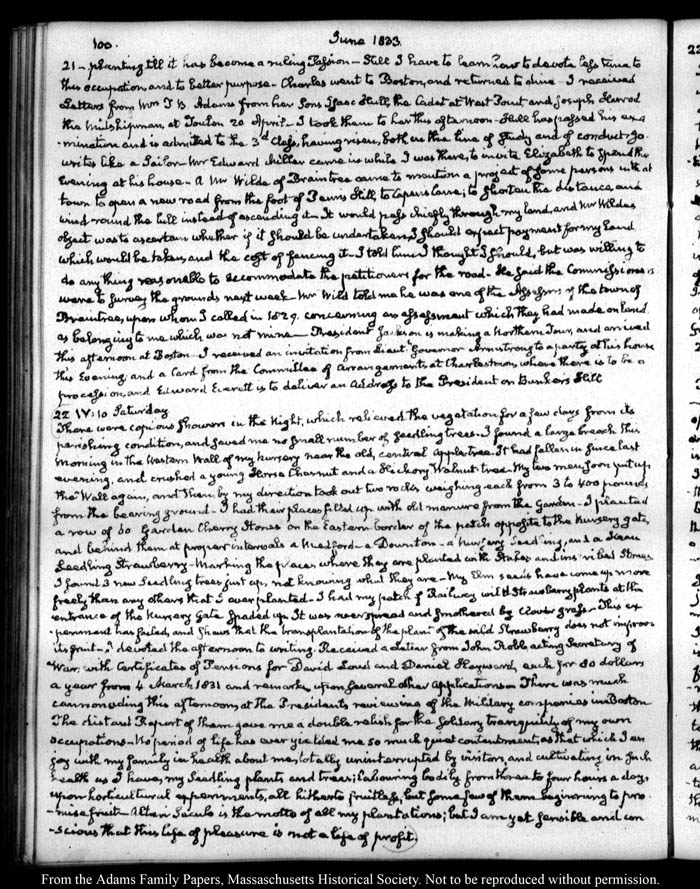 100.
June 1833.
21 – planting till it has become a ruling Passion – Still I have to learn how to devote less time to
this occupation, and to better purpose – Charles went to Boston, and returned to dine – I received
Letters from Mrs T. B. Adams from her Sons Isaac Hull, the Cadet at West Point and Joseph Harrod
the Midshipman, at Toulon 20 April – I took them to her this afternoon – Hull has passed his exa
-mination and is admitted to the 3d Class, having risen, both in the line of Study and of conduct. Jo.
writes like a Sailor – Mr Edward Miller came in while I was there, to invite Elizabeth to spend the
Evening at his house – A Mr Wilde of Braintree came to mention a project of some persons in that
town to open a new road from the foot of Penns Hill, to Capens lane; to shorten the distance, and
wind round the hill instead of ascending it – It would pass chiefly through my land, and Mr Wildes
object was to ascertain whether if it should be undertaken, I should expect payment for my Land
which would be taken, and the cost of fencing it – I told him I thought I should, but was willing to
do any thing reasonable to accommodate the petitioners for the road – He said the Commissioners
were to survey the grounds next week – Mr Wild told me he was one of the Assessors of the town of
Braintree, upon whom I called in 1829. concerning an assessment which they had made on land
as belonging to me which was not mine – President Jackson is making a Northern Tour, and arrived
this afternoon at Boston – I received an invitation from Lieut. Governor Armstrong to a party at his house
this Evening, and a Card from the Committee of Arrangements at Charlestown, where there is to be a
procession, and Edward Everett is to deliver an Address to the President on Bunkers Hill
22 IV:10 Saturday.
There were copious showers in the Night, which relieved the vegetation for a few days from its
perishing condition, and saved me no small number of seedling trees – I found a large breach this
morning in the Western Wall of my nursery near the old, central appletree. It had fallen in since last
evening, and crushed a young Horse Chesnut and a Hickory Walnut tree – My two men soon put up
the Wall again, and then by my direction took out two rocks weighing each from 3 to 400 pounds
from the bearing ground – I had their places filled up with old manure from the Garden – I planted
a row of 60 Garden Cherry Stones on the Eastern border of the patch opposite to the Nursery gate,
and behind them at proper intervals a Medford – a Downton – a Nursery Seedling, and a
Seedling Strawberry – Marking the places where they are planted with Stakes and inscribed Stones
I found 3 new Seedling trees just up, not knowing what they are – My Elm seeds have come up more
freely than any others that I ever planted – I had my patch of Railway wild Strawberry plants at the
entrance of the Nursery Gate spaded up. It was overspread and smothered by Clover grass – This ex
-periment has failed, and shews that the transplantation of the plant of the wild Strawberry does not improve
its fruit – I devoted the afternoon to writing. Received a Letter from John Robb, acting Secretary of
War, with Certificates of Pensions for David Loud and Daniel Hayward, each for 80 dollars
a year from 4 March 1831 and remarks upon several other applications – There was much
cannonading this afternoon, at the Presidents reviewing of the Military companies in Boston
The distant Report of them gave me a double relish for the solitary tranquility of my own
occupations – No period of life has ever yielded me so much quiet contentment, as that which I en
joy with my family in health about me, totally uninterrupted by visitors, and cultivating in such
health as I have, my Seedling plants and trees; Labouring bodily from three to four hours a day,
upon horticultural experiments, all hitherto fruitless, but some few of them beginning to pro
-mise fruit – Alteri Seculo is the motto of all my plantations; but I am yet sensible and con
-scious that this life of pleasure is not a life of profit.
From the Adams Family Papers, Massachusetts Historical Society. Not to be reproduced without permission.